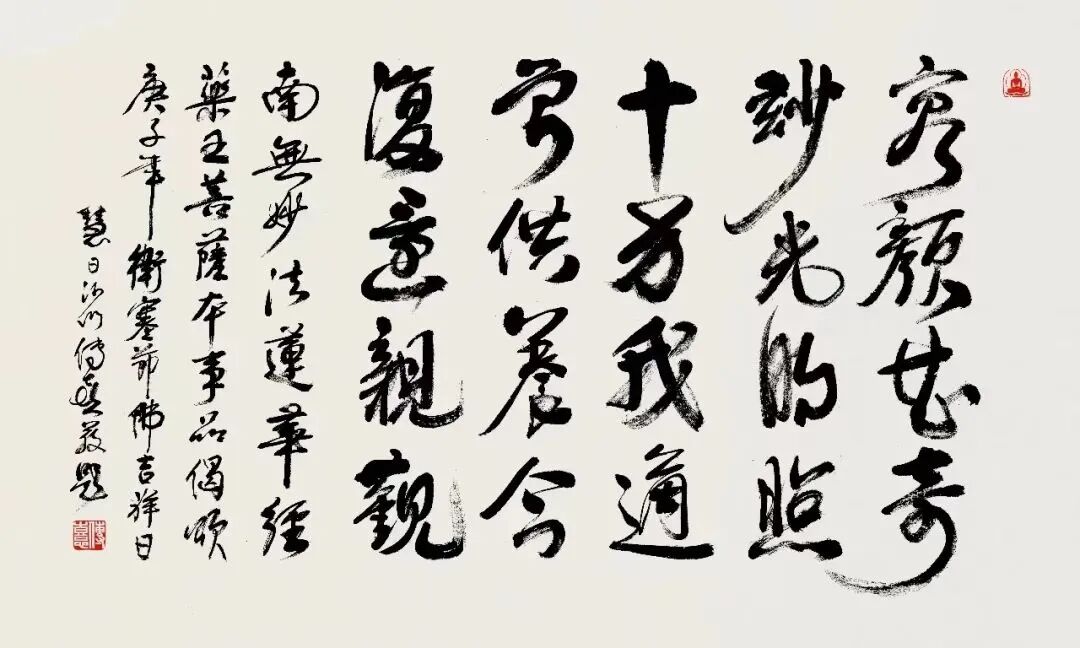 容顏甚奇
妙光明照
十方我適
曾供養今
復還親覲
南無妙法蓮華經
藥王菩薩本事品偈頌
庚子年衛塞節佛吉祥日
慧日沙門傳喜敬題
傳喜